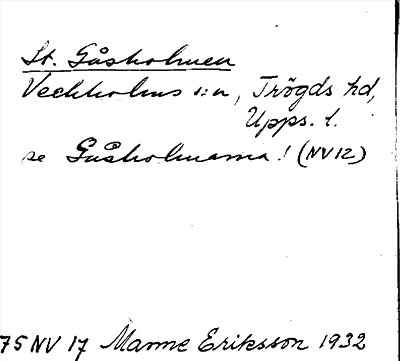 St. Gåsholmen
Veckholms s:n, Trögds hd,
Upps. l.
se Gåsholmarna! (NV12)
75 NV 17 Manne Eriksson 1932